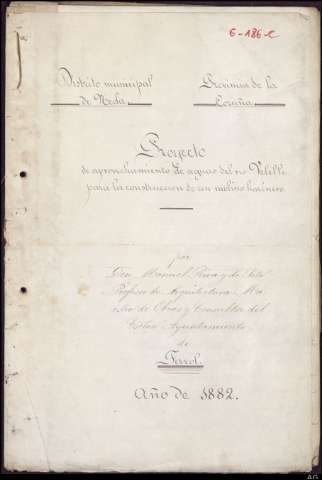 6-186-c
Distrito municipal
de Neda.
Provincia de la
Coruña.
Proyecto
de aprovechamiento de aguas del rio Belelle
para la construccion de un molino harinero.
por
Don Manuel Rua y de
Profesor de Arquitectura Ma
estro de Obras y Consultor del
Ayuntamiento
de
Ferrol.
Año de 1882.
AG